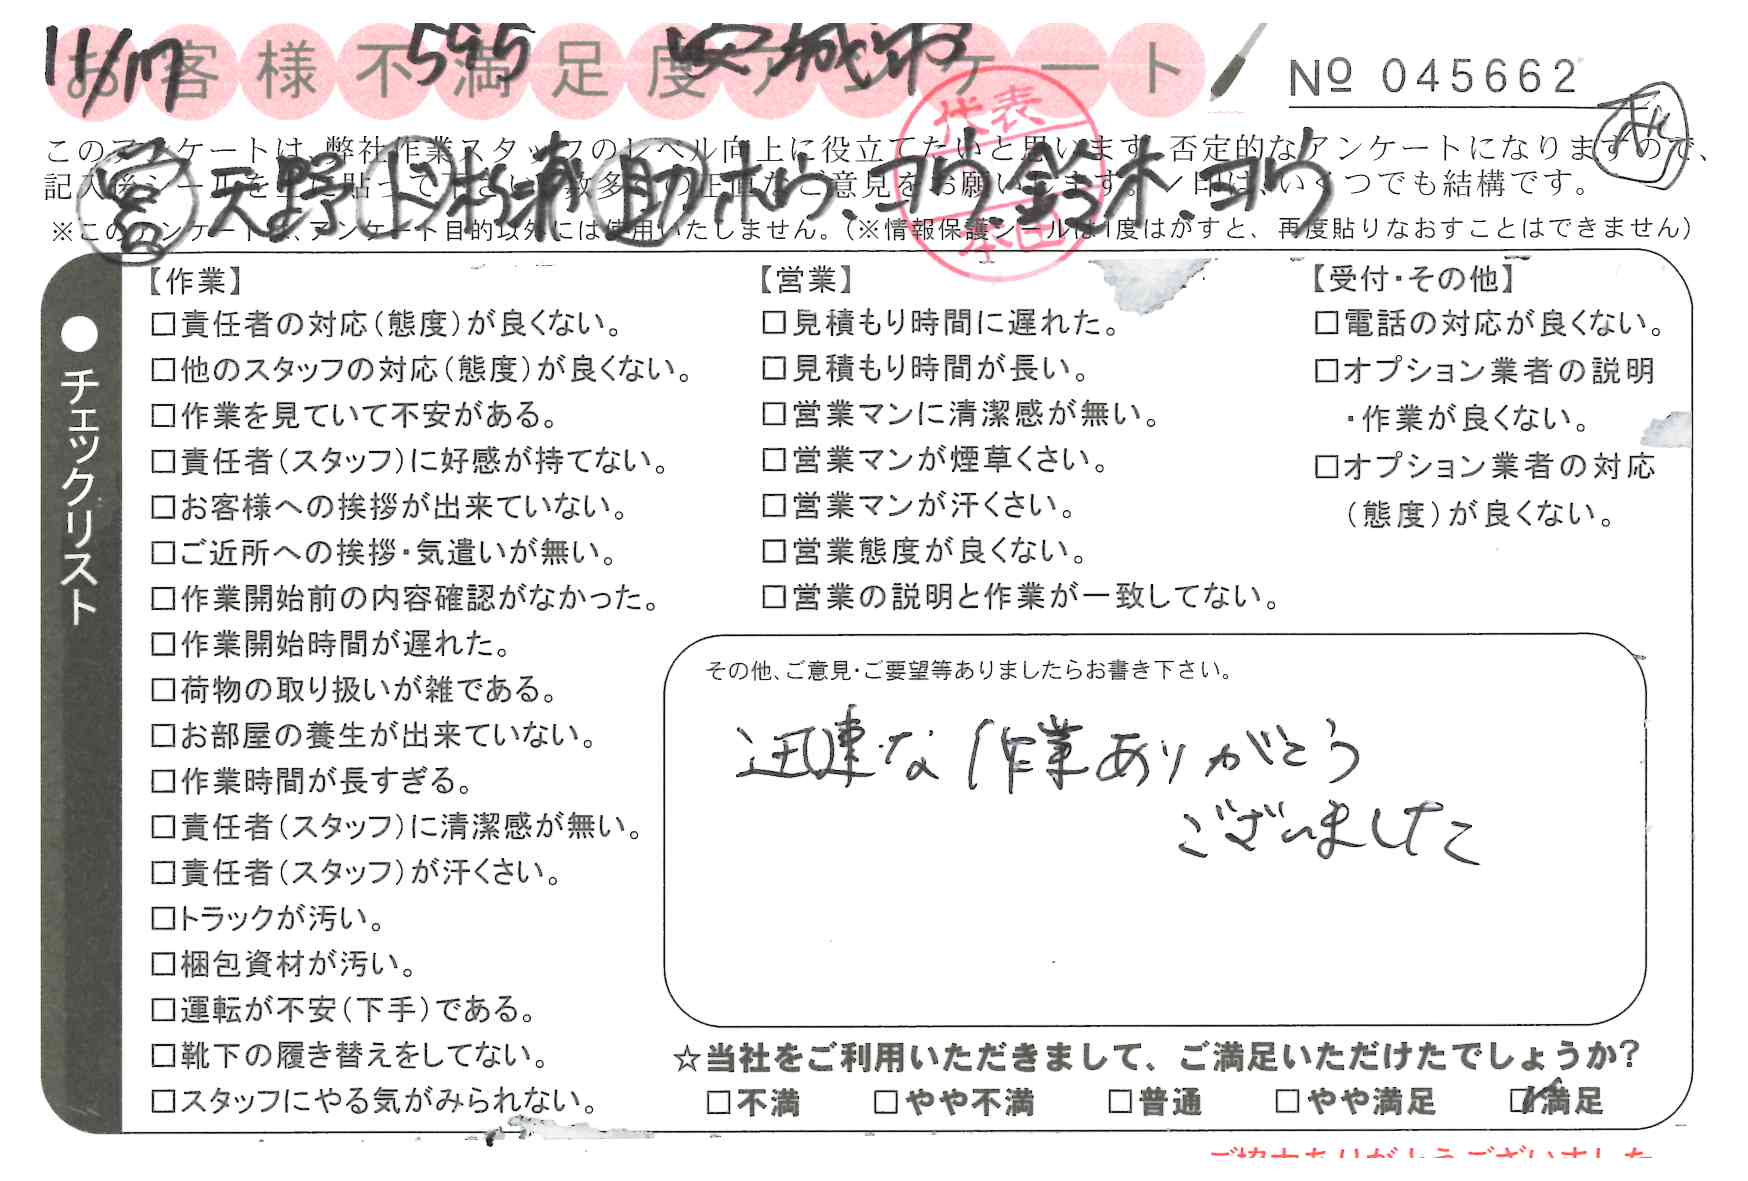 11/17 595 安城市
お客様不満足度アンケート
No 045662
このアンケートは、弊社作業スタッフのレベル向上に役立てたいと思います。否定的なアンケートになりますので、
営 天野 ド 助 ホウ、コウ、鈴木、ヨウ
記入後シールを上に貼って下さい。数多くの正直なご意見をお願いします。✓印は、いくつでも結構です。
※このアンケートは、アンケート目的以外には使用いたしません。(※情報保護シールは1度はがすと、再度貼りなおすことはできません)
代表
本田
●チェックリスト
【作業】
□責任者の対応(態度)が良くない。
□他のスタッフの対応(態度)が良くない。
□作業を見ていて不安がある。
□責任者(スタッフ)に好感が持てない。
□お客様への挨拶が出来ていない。
□ご近所への挨拶・気遣いが無い。
□作業開始前の内容確認がなかった。
□作業開始時間が遅れた。
□荷物の取り扱いが雑である。
□お部屋の養生が出来ていない。
□作業時間が長すぎる。
□責任者(スタッフ)に清潔感が無い。
□責任者(スタッフ)が汗くさい。
□トラックが汚い。
□梱包資材が汚い。
□運転が不安(下手)である。
□靴下の履き替えをしてない。
□スタッフにやる気がみられない。
【営業】
□見積もり時間に遅れた。
□見積もり時間が長い。
□営業マンに清潔感が無い。
□営業マンが煙草くさい。
□営業マンが汗くさい。
□営業態度が良くない。
□営業の説明と作業が一致してない。
【受付・その他】
□電話の対応が良くない。
□オプション業者の説明
・作業が良くない。
□オプション業者の対応
(態度)が良くない。
その他、ご意見・ご要望等ありましたらお書き下さい。
迅速な作業ありがとう
ございました
☆当社をご利用いただきまして、ご満足いただけたでしょうか?
□不満 □やや不満 □普通 □やや満足 ☑満足
ご協力ありがとうございました